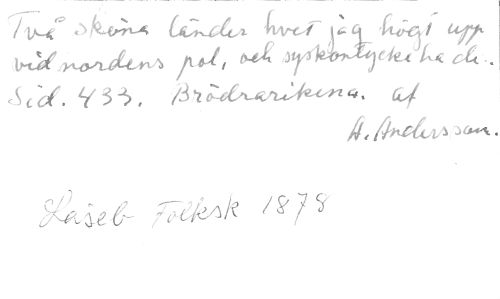 Två sköna länder hvet jag högt upp
vid nordens pol, och syskontycke ha de..
Sid. 433. Brödrarikena. af
A. Andersson.
Läseb Folksk 1878